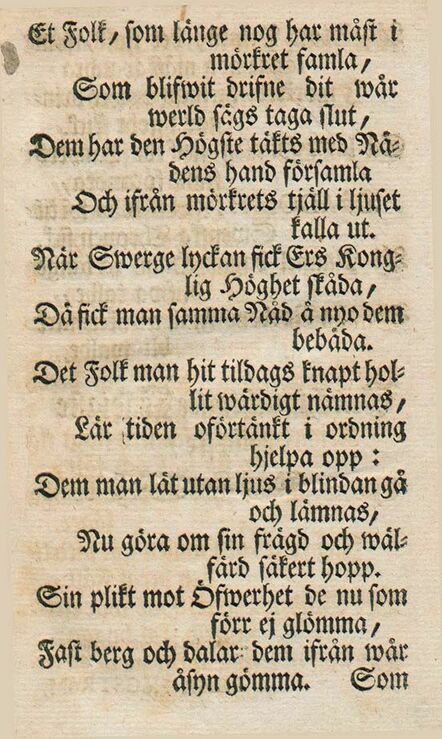 Et Folk, som länge nog har måst i
mörkret famla,
Som blifwit drifne dit wår
werld sägs taga slut,
Dem har den Högste täkts med Nå-
dens hand församla
Och ifrån mörkrets tjäll i ljuset
kalla ut.
När Swerge lyckan fick Ers Kong-
lig Höghet skåda,
Då fick man samma Nåd å nyo dem
bebåda.
Det Folk man hit tildags knapt hol-
lit wärdigt nämnas,
Lär tiden oförtänkt i ordning
hjelpa opp:
Dem man lät utan ljus i blindan gå
och lämnas,
Nu göra om sin frägd och wäl-
färd säkert hopp.
Sin plikt mot Öfwerhet de nu som
förr ej glömma,
Fast berg och dalar dem ifrån wår
åsyn gömma. Som